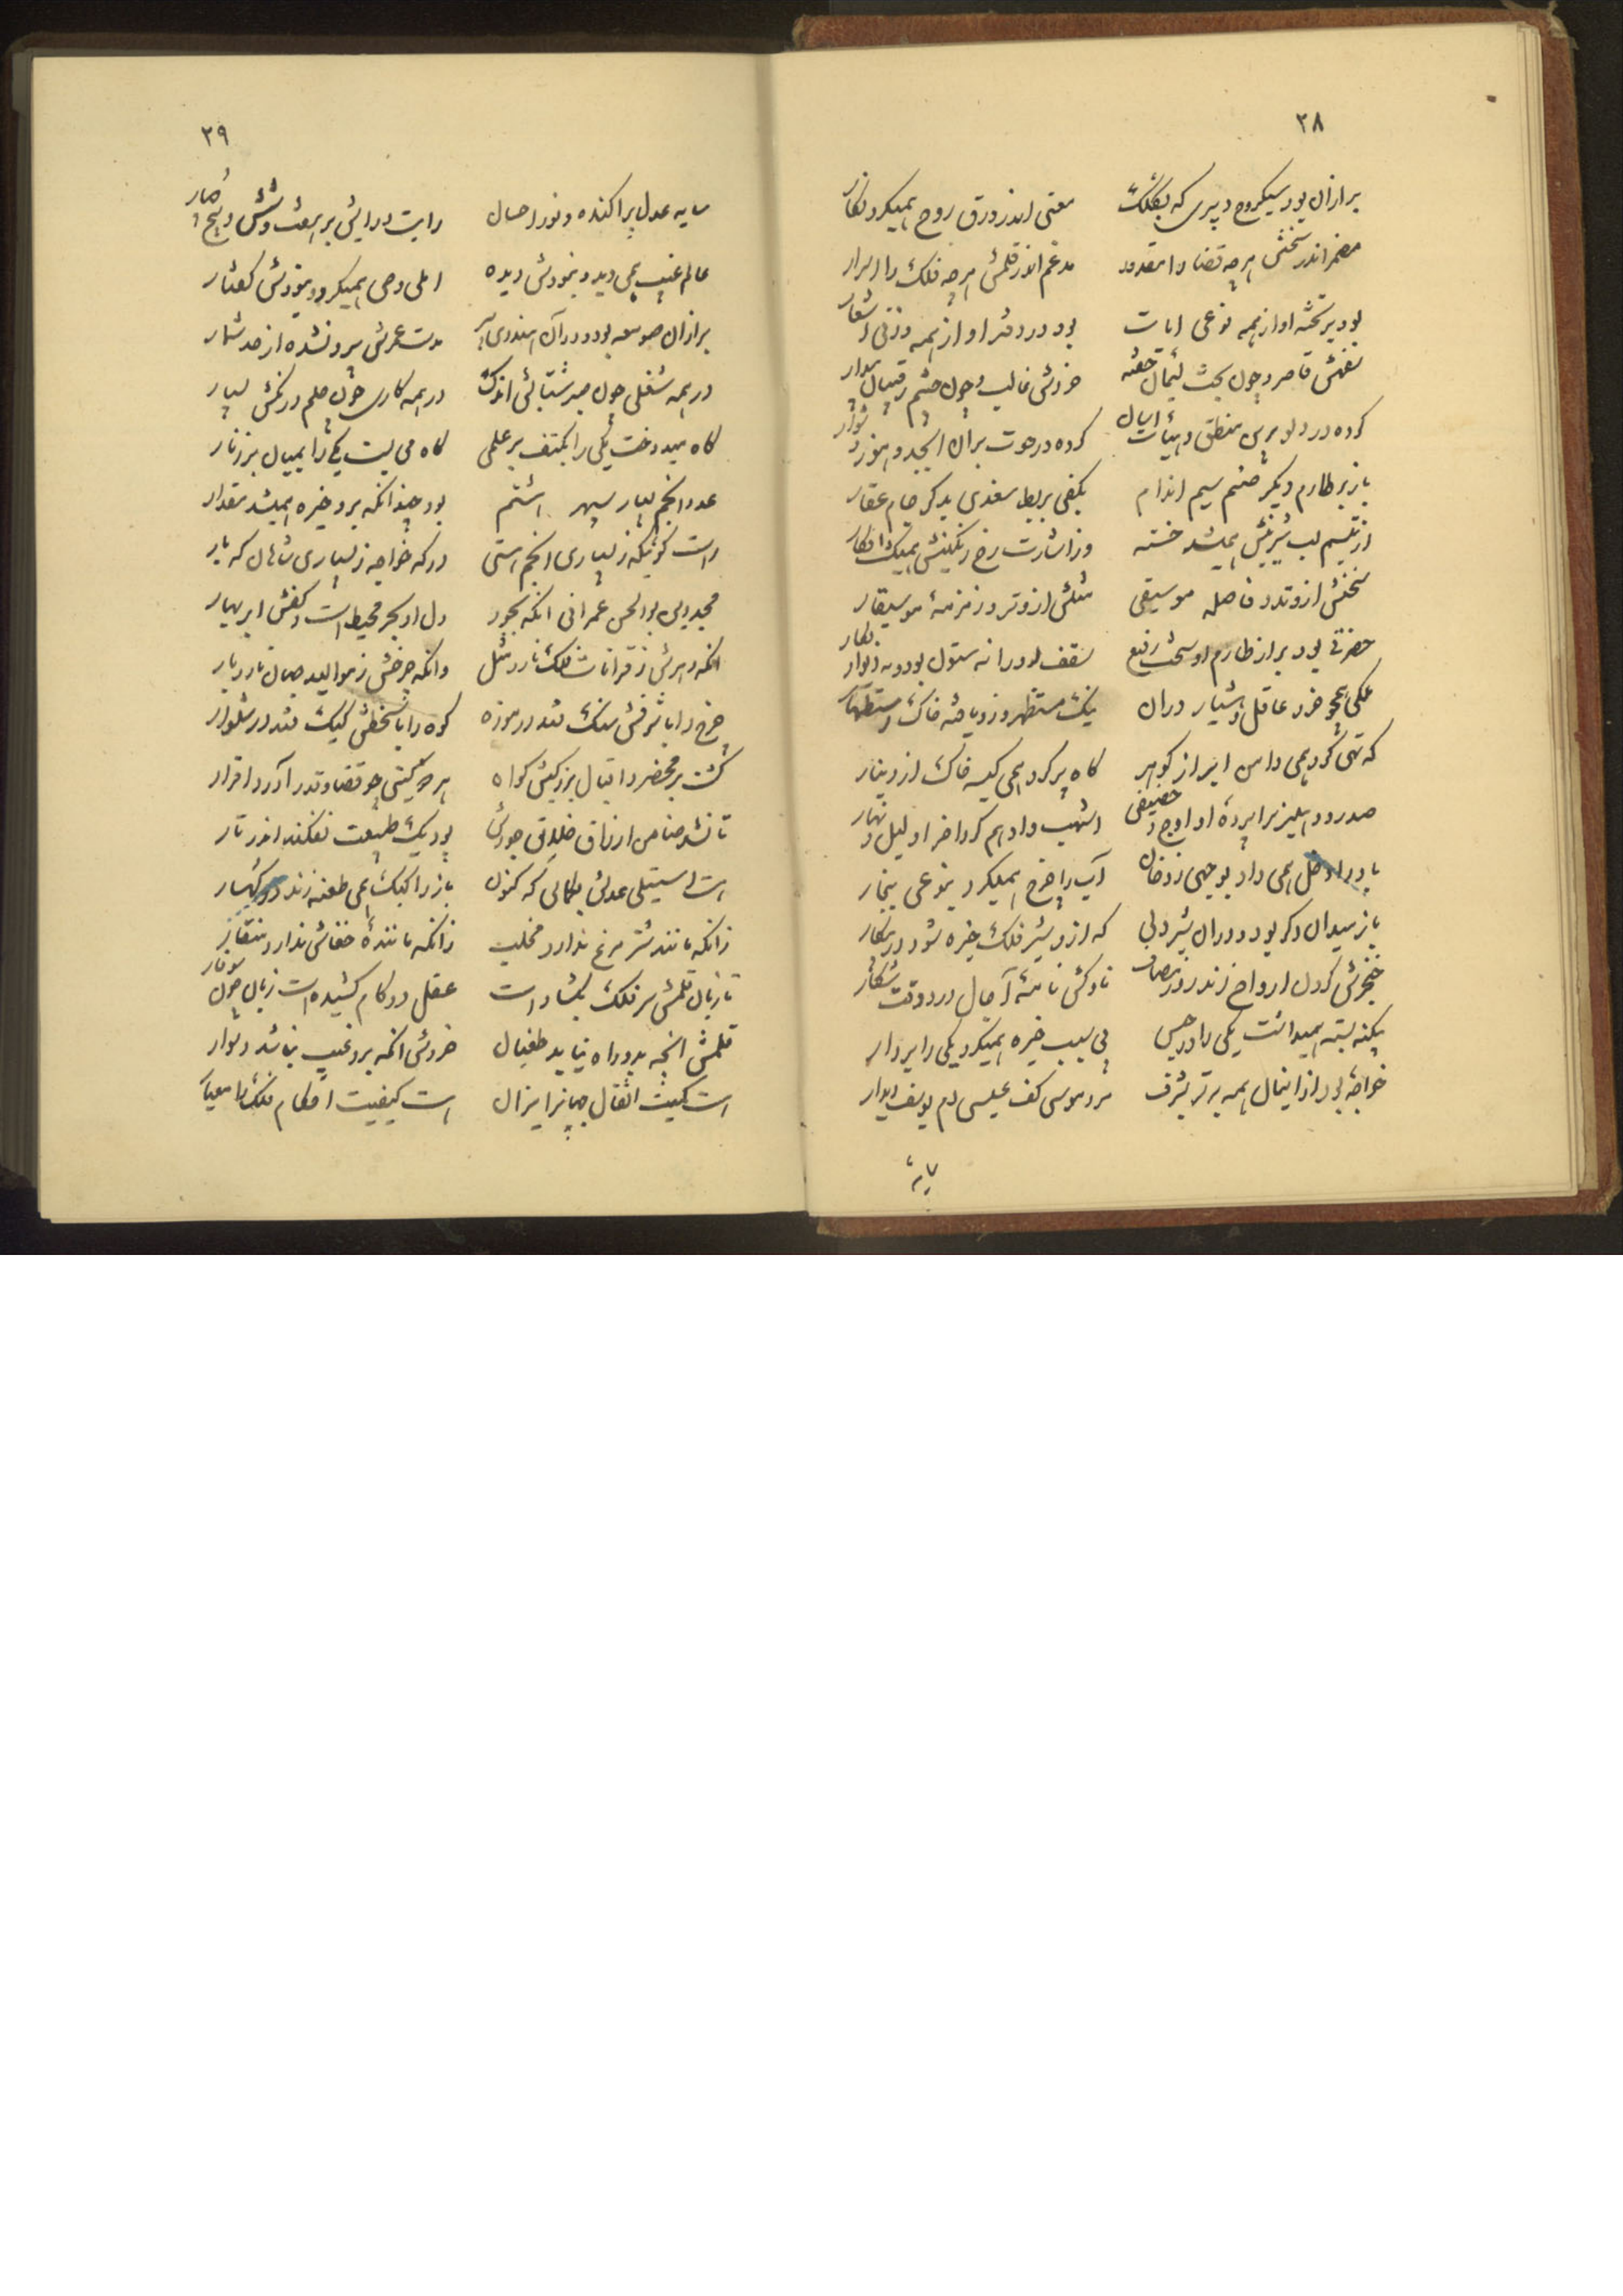 ۲۸
برازان بود سبکروح دبیری که بکلک معنی اندر ورق روح همیکرد نکار
مضمر اندر سخنش هرچه قضا را مقدور مدغم اندر قلمش هرچه فلک را اسرار
بود بر تخته او از همه نوعی ابیات بود در دفتر او از همه وزنی اشعار
نفسش قاصر و چون بخت لئیمان خفته خردش غالب و چون چشم رقیبان بیدار
کرده در دلو برین منطق و هیئات آسان کرده در حوت بران ابجد و هوز دشوار
باز بر طارم دیگر صنم سیم اندام بکفی بربط سغدی بدگر جام عقار
از تبسم لب شیرینش همیشد خسته وز اشارت رخ رنگینش همیگشت افکار
سخنش از وتد و فاصله موسیقی مثلش از وتر و زمزمهٔ موسیقار
حضرتی بود بر از طارم او سخت رفیع سقف او را نه ستون بود و نه دیوار بکار
ملکی همچو خرد عاقل و هشیار دران نیک مستظهر و زو یافته خاک استظهار
که تهی کرد همی دامن ابر از گوهر گاه پر کرد همی کیسه خاک از دینار
صدر دهلیز سراپرده او اوج و حضیض اشهب و ادهم کرد آخر او لیل و نهار
باد را دخل همی داد بوجهی ز دخان آب را خرج همیکرد بنوعی ببخار
باز میدان دگر بود و دران شیر دلی که ازو شیر فلک خیره شود در پیکار
خنجرش گردن ارواح زند روز مصاف ناوکش نامهٔ آجال درد وقت شکار
بیگنه بسته همیداشت یکی را در حبس بی سبب خیره همیکرد یکی را بر دار
خواجهٔ بود از اینان همه برتر بشرف مرد موسی کف عیسی دم یوسف دیدار
سایه
۲۹
سایه عدل پراکنده و نور احسان رایت و رایش بر هفت و شش و پنج و چهار
عالم غیب همی دید و نبودش دیده املی وحی همیکرد و نبودش گفتار
برازان صومعه بود و دران هندوی پیر مدت عمرش بیرون شده از حد شمار
در همه شغلی چون صبر شتابش اندک در همه کاری چون حلم درنگش بسیار
گاه میدوخت یکی را بکتف بر علمی گاه می بست یکی را بمیان بر زنار
عدد انجم بسیار سپهر هشتم بود چندانکه برو خیره همیشد مقدار
راست گوئیکه ز بسیاری انجم هستی درگه خواجه ز بسیاری شاهان که بار
مجد دین بوالحسن عمرانی انکه بجود دل او بحر محیط است و کفش ابر بهار
انکه دهرش ز قرانات فلک نارد مثل وانکه چرخش ز موالید جهان نارد یار
چرخ را با شرفش سنگ فتد در موزه کوه را با سخطش کیک فتد در شلوار
گشت بر محضر اقبال بزرگیش گواه هر چه گیتی چو قضا و قدر آورد اقرار
تا نشد ضامن ارزاق خلایق جودش بود یک طبیعت نفکند اندر تار
است استیلی عدلش بکمالی که کنون باز را کبک همی طعنه زند در کهسار
زانکه مانند شتر مرغ ندارد مخلب زانکه مانندهٔ خفاش ندارد منقار
تا زبان قلمش سر فلک بگشاد است عقل در کام کشیده است زبان چون سوفار
قلمش انچه بدو راه نیابد طغیان خردش انکه برو غیب نباشد دیوار
است کمیت اثقال جهانرا میزان است کیفیت احکام فلک را معیار